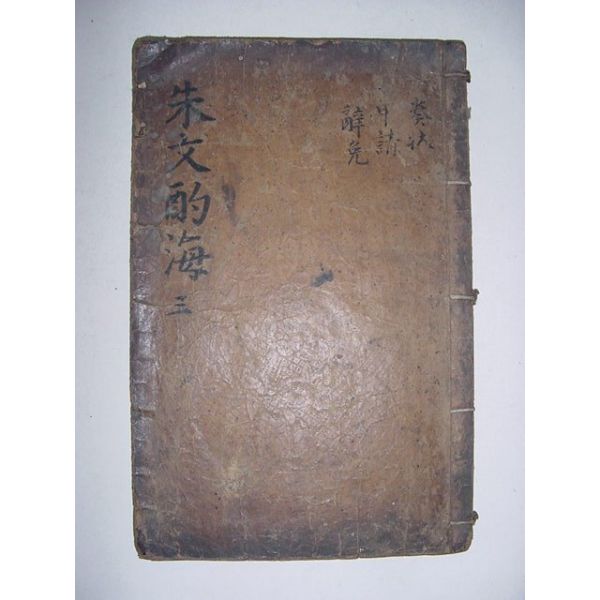 朱文酌海 三
奏狀
申請
辭免